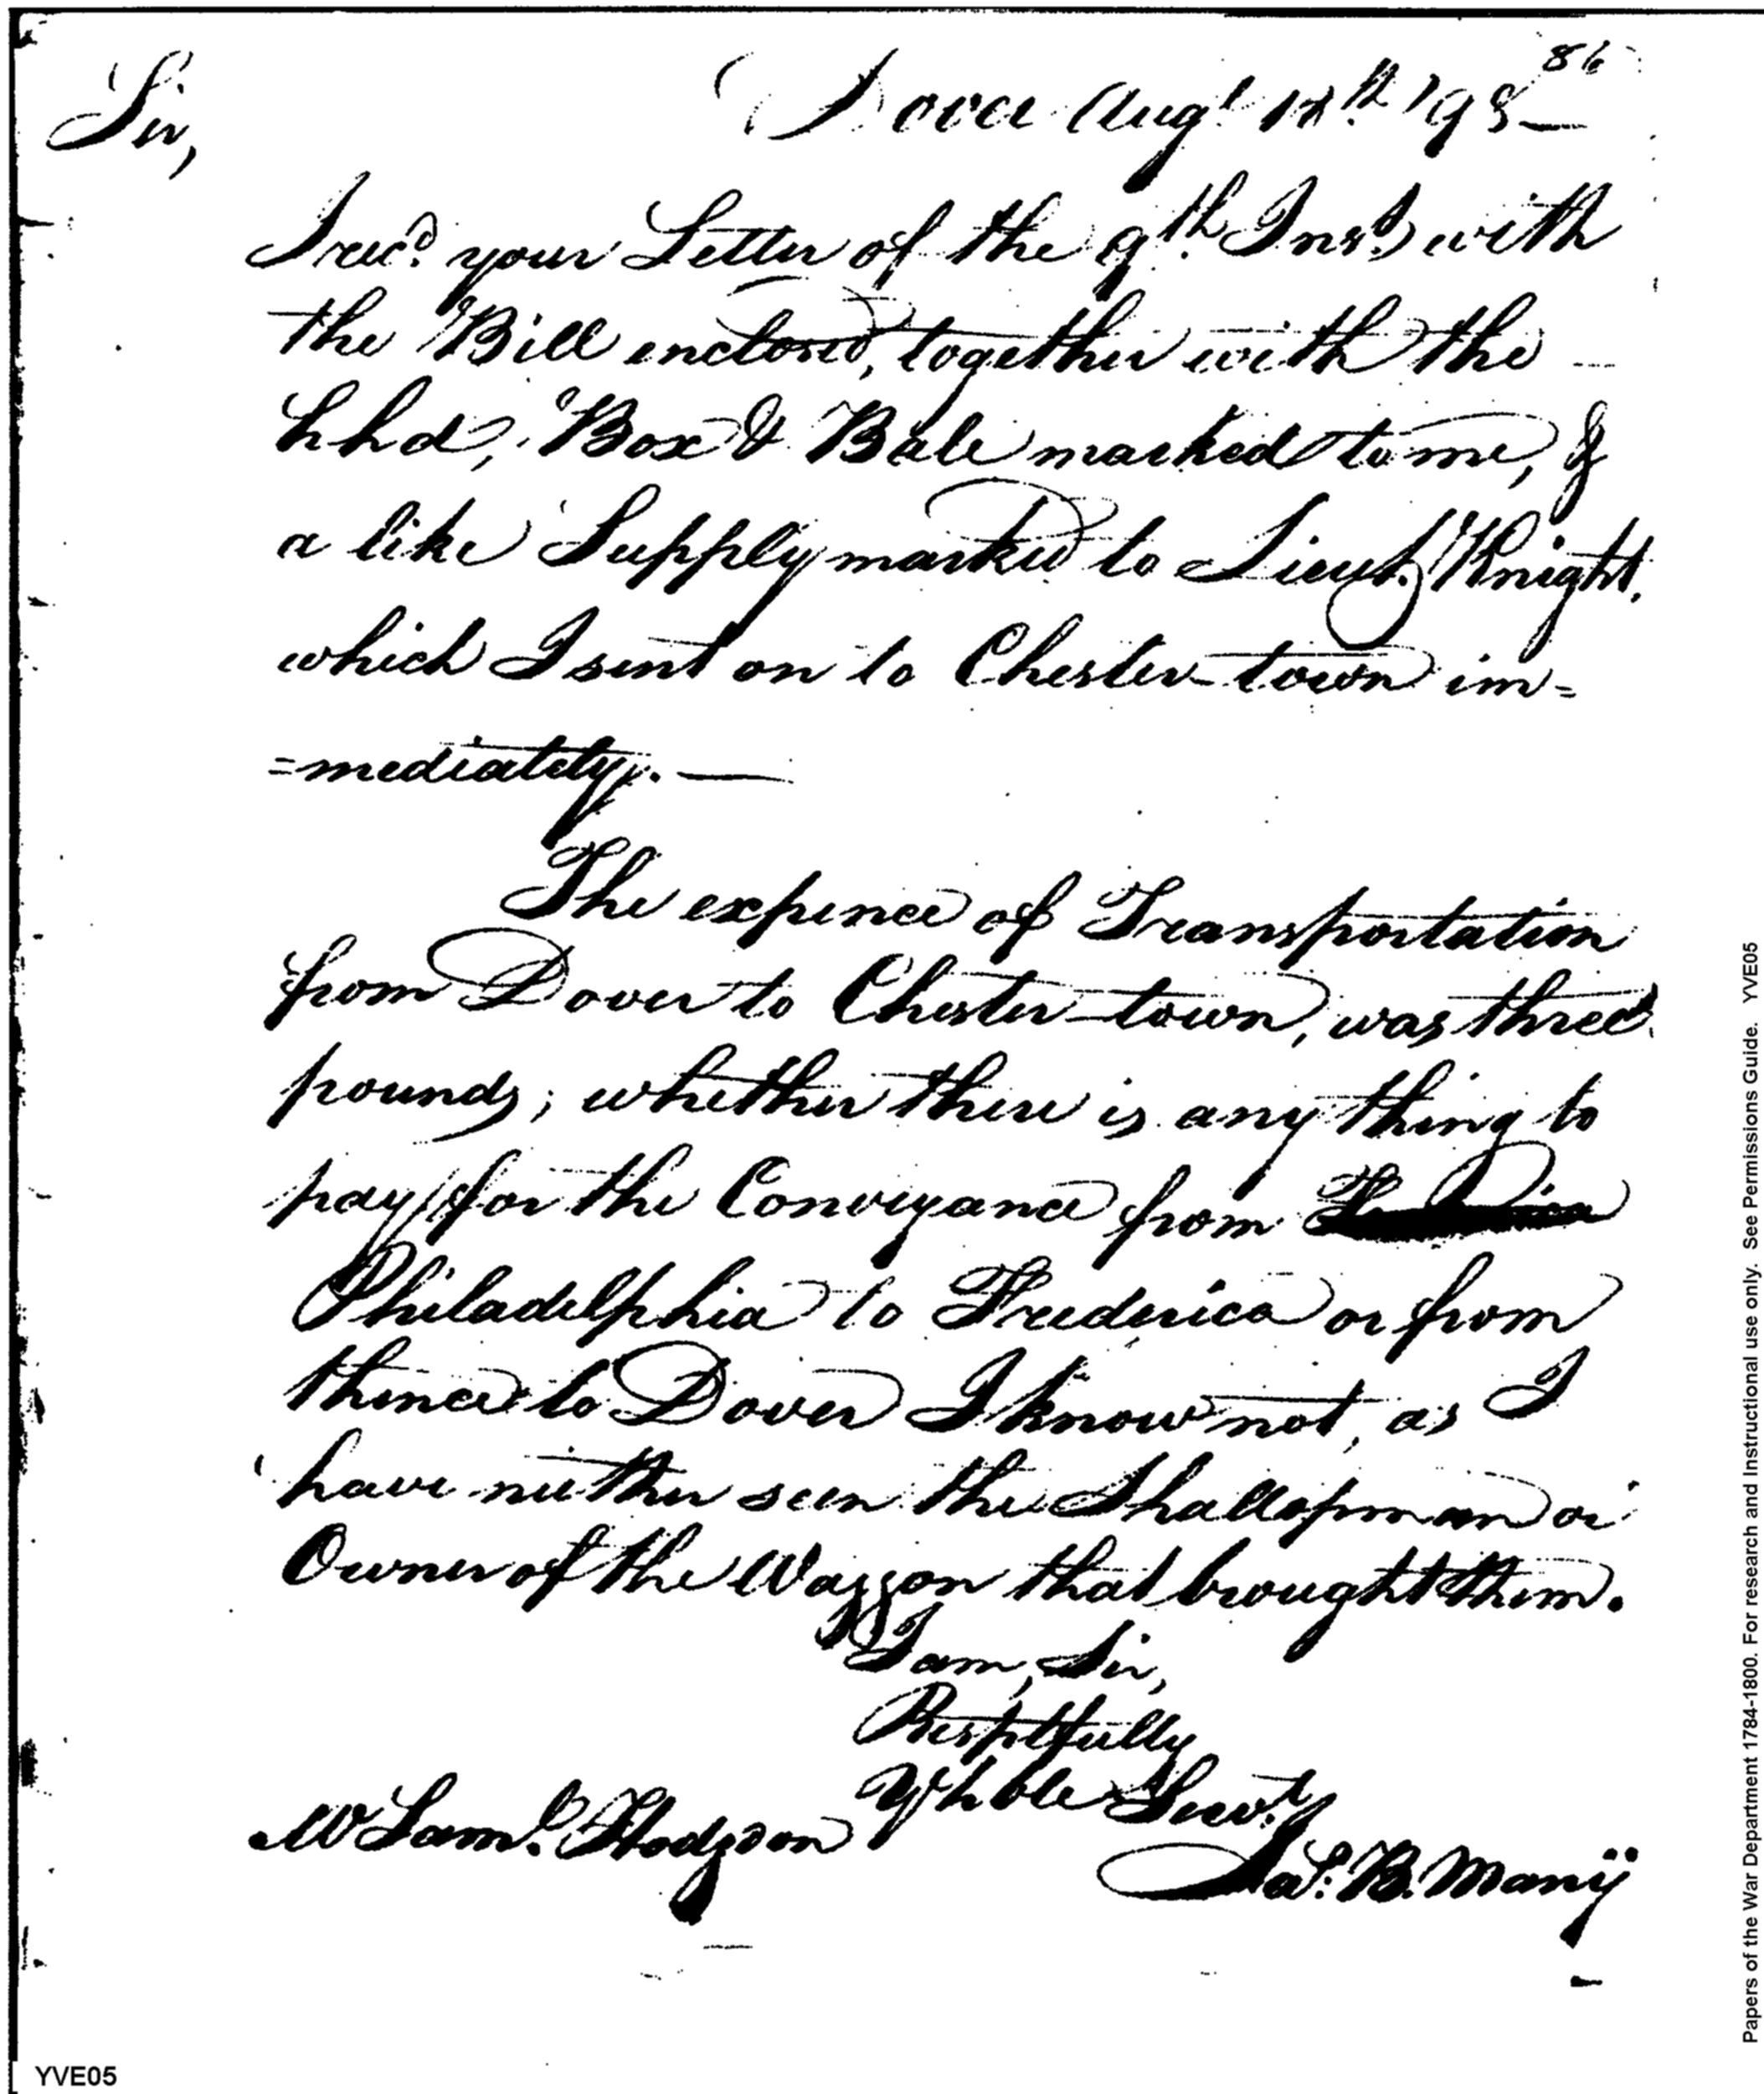 86
Sir,
Dover Augt. 12th. '98—
I recd. your Letter of the 9th. Inst. with
the Bill enclosed, together with the
hhd, Box & Bale marked to me, &
a like Supply marked to Lieut. Knight,
which I sent on to Chester-town im=
=mediately.—
The expence of Transportation
from Dover to Chester-town, was three
pounds; whether there is any thing to
pay for the Conveyance from
Philadelphia to Frederica or from
thence to Dover I know not, as I
have neither seen the Shallopman or
Owner of the Waggon that brought them.
I am, Sir,
Resptfully
Yr hble Servt.
Jas. B. Many
Mr Saml. Hodgson
Papers of the War Department 1784-1800. For research and Instructional use only. See Permissions Guide. YVE05
YVE05